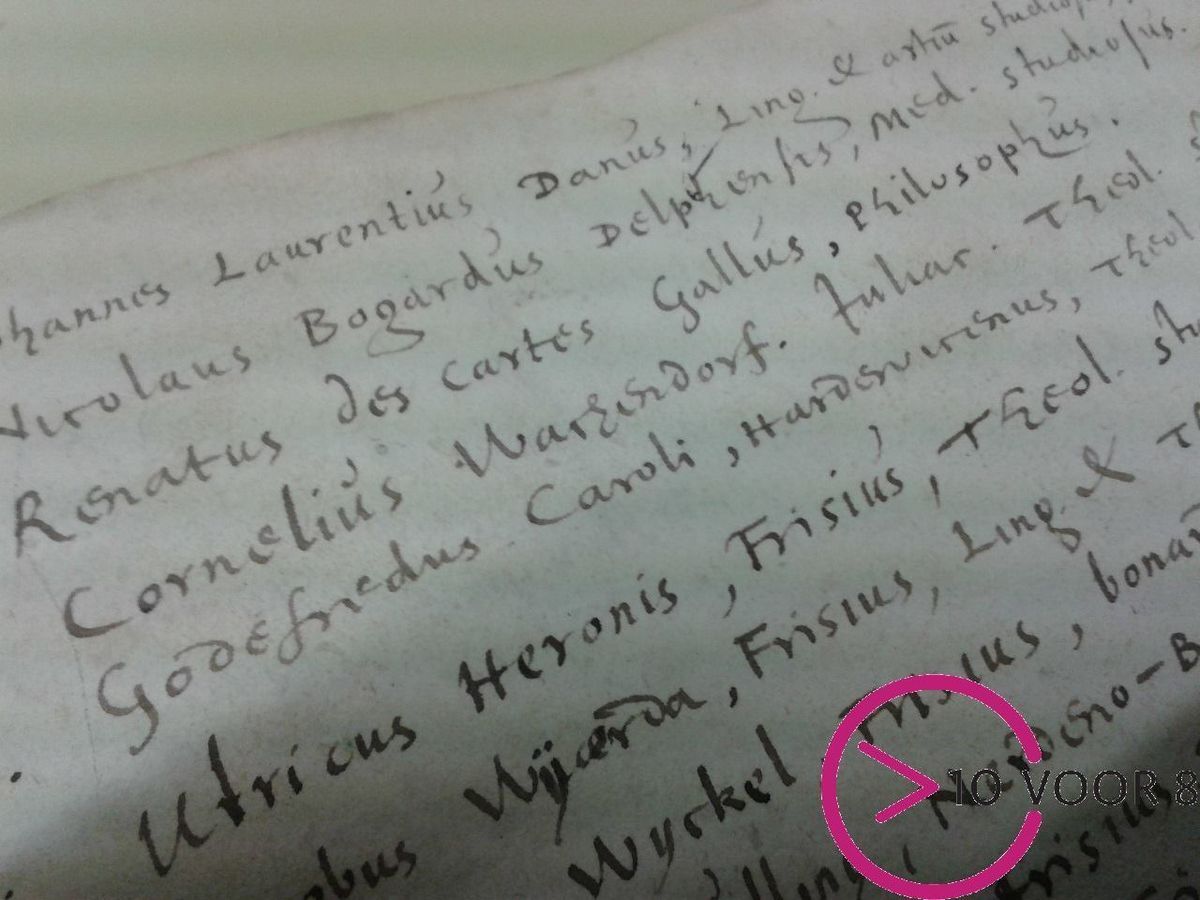 Johannes Laurentiús Danús, Ling. & artiū studiosus
Nicolaus Bogardús Delphensis, Med. studiosus.
Renatus des Cartes Gallús, Philosophús.
Corneliús Warhendorf. Theol.
Godefredus Caroli, Hardervicenus, Theol
Utricus Heronis, Frisiús, Theol. stu
obus Wijærda, Frisius, Ling. & Th
Wyckel Frisius, bonarū
Nardeno-B
Frisius
10 VOOR 8